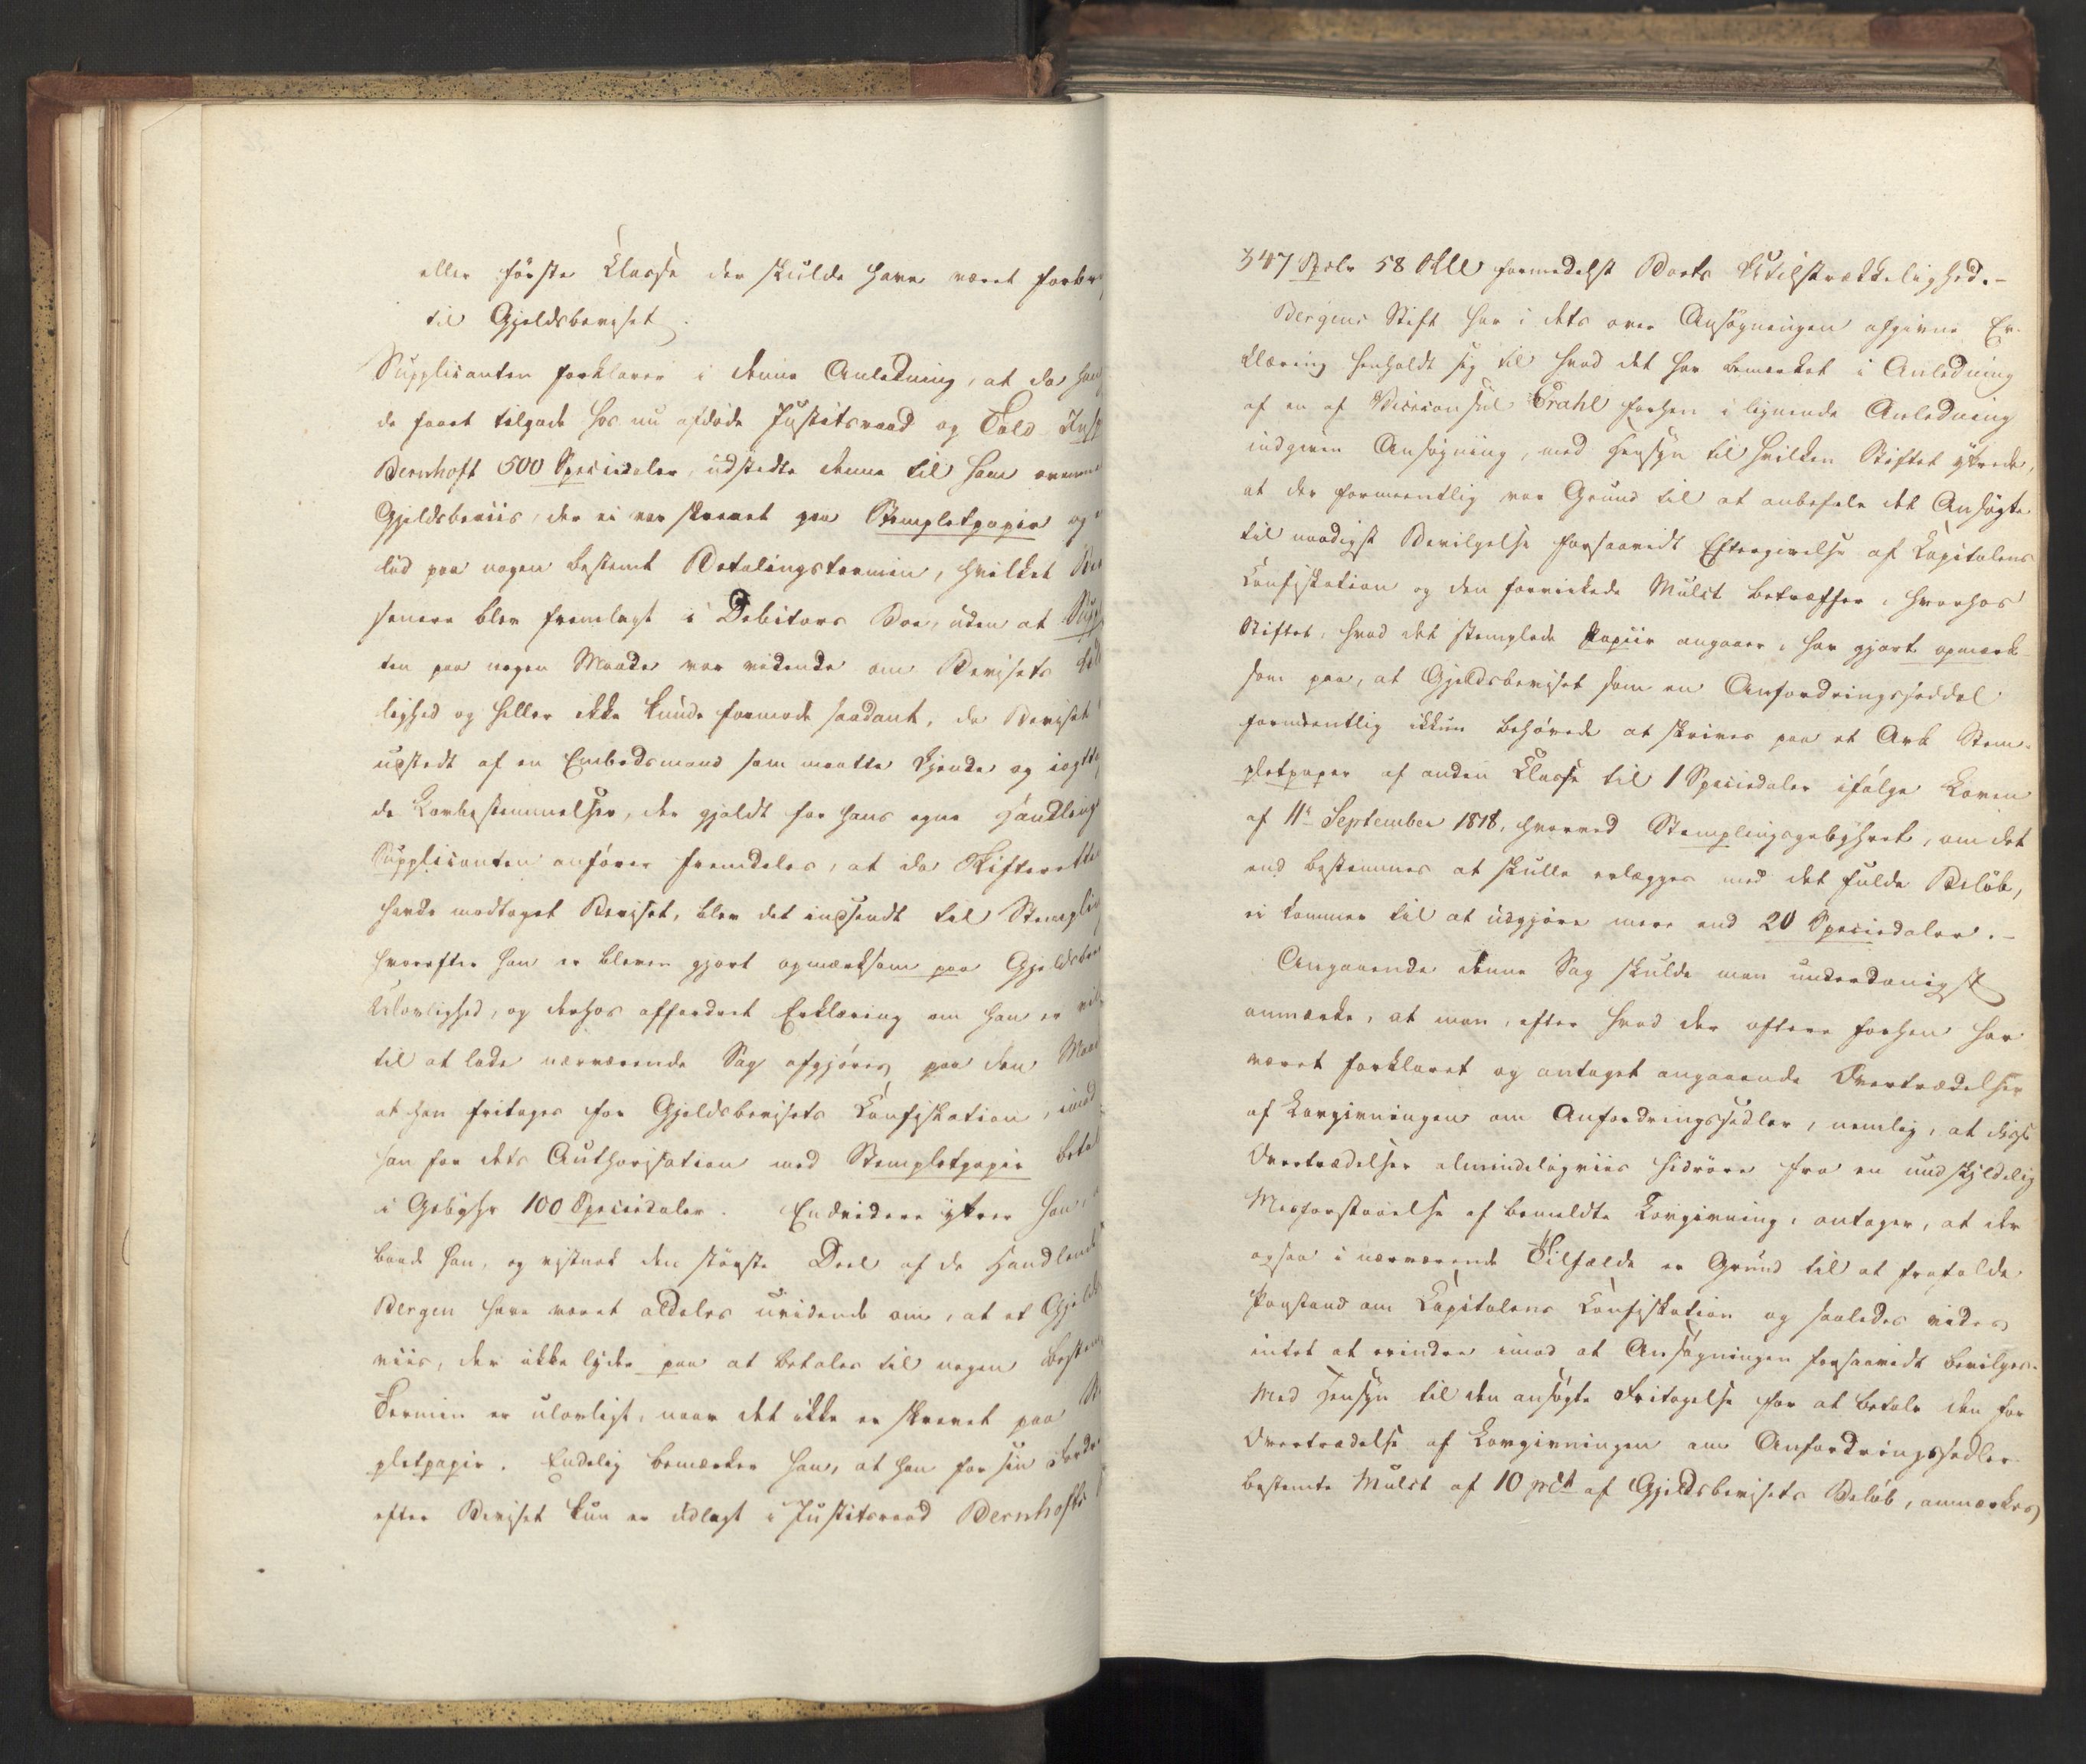 eller første Klasse der skulde have været forbru
til Gjeldsbeviset.
Supplicanten forklarer i denne Anledning, at da han
de havt tilgode hos nu afdøde Justitsraad og Told Insp
Bernhoft 500 Speciedaler, udstedte denne til ham ovenme
Gjeldsbeviis, der ei var skrevet paa Stemplet papir og
lød paa nogen bestemt Betalingstermin, hvilket
senere blev fremlagt i Debitors Boe, uden at Supp
ten paa nogen Maade var vidende om Bevisets
lighed og heller ikke kunde formode saadant, da Beviset
udstedt af en Embedsmand som maatte kjende og iagtta
de Lovbestemmelser, der gjaldt for hans egne Handling
Supplicanten anfører fremdeles, at da Skifteretten
havde modtaget Beviset, blev det indsendt til Stempling
hvorefter han er bleven gjort opmærksom paa Gjeldsbev
Ulovlighed, og derhos affordret Erklæring om han er vil
til at lade nærværende Sag afgjøres paa den Maad
at han fritages for Gjeldsbevisets Konfiskation, imod
han for dets Authorisation med Stempletpapir betal
i Gebyhr 100 Speciedaler. Endvidere yttrer han,
baade han, og vistnok den største Deel af de Handlende
Bergen have været aldeles uvidende om, at et Gjelds
viis, der ikke lyder paa at betales til nogen bestem
Termin er ulovligt, naar det ikke er skrevet paa
pletpapir. Endelig bemærker han, at han for sin Fordr
efter Beviset kun er udlagt i Justitsraad Bernhofts
347 Spdlr 58 Skll formedelst Boets Utilstrækkelighed.-
Bergens Stift har i dets over Ansøgningen afgivne Er-
klæring henholdt sig til hvad det har bemærket i Anledning
af en af Viceconsul Krahl forhen i lignende Anledning
indgiven Ansøgning, med Hensyn til hvilken Stiftet yttrede,
at der formeentlig var Grund til at anbefale det Ansøgte
til naadigst Bevilgelse forsaavidt Eftergivelse af Kapitalens
Konfiskation og den forvirkede Mulct betræffer, hvorhos
Stiftet, hvad det stemplede Papiir angaaer, har gjort opmærk-
som paa, at Gjeldsbeviset som en Anfordringsseddel
formeentlig ikkun behøvede at skrives paa et Ark Stem-
pletpaper af anden Klasse til 1 Speciedaler ifølge Loven
af 11te September 1818, hvorved Stemplingsgebyhret, om det
end bestemmes at skulle erlægges med det fulde Beløb,
ei kommer til at udgjøre mere end 20 Speciedaler.-
Angaaende denne Sag skulde man underdanigst
anmærke, at man, efter hvad der oftere forhen har
været forklaret og antaget angaaende Overtrædelser
af Lovgivningen om Anfordringssedler, nemlig, at disse
Overtrædelser almindeligviis hidrøre fra en undskyldelig
Misforstaaelse af bemeldte Lovgivning, antager, at der
ogsaa i nærværende Tilfælde er Grund til at frafalde
Paastand om Kapitalens Konfiskation og saaledes vides
intet at erindre imod at Ansøgningen forsaavidt bevilges.
Med Hensyn til den ansøgte Fritagelse for at betale den for
Overtrædelse af Lovgivningen om Anfordringssedler
bestemte Mulct af 10 pCt af Gjeldsbevisets Beløb, anmærkes